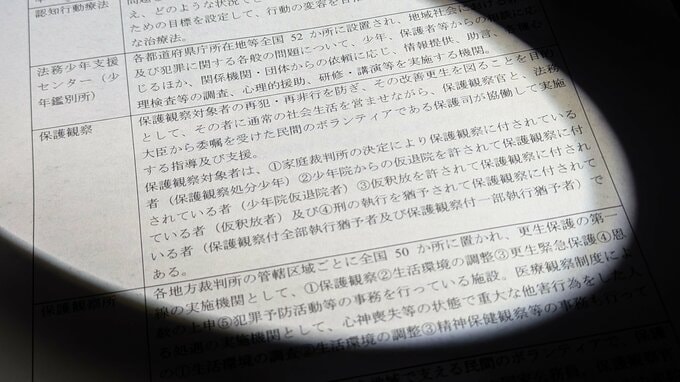 認知行動療法
え、どのような状況で
ための目標を設定して、行動の変容を目
な治療法。
法務少年支援
センター（少
年鑑別所）
各都道府県庁所在地等全国 52 か所に設置され、地域社会
及び犯罪に関する各般の問題について、少年、保護者等からの相談に応
じるほか、関係機関・団体からの依頼に応じ、情報提供、助言、
理検査等の調査、心理的援助、研修・講演等を実施する機関。
保護観察
保護観察対象者の再犯・再非行を防ぎ、その改善更生を図ることを目的
として、その者に通常の社会生活を営ませながら、保護観察官と、法務
大臣から委嘱を受けた民間のボランティアである保護司が協働して実施
する指導及び支援。
保護観察対象者は、①家庭裁判所の決定により保護観察に付されている
者（保護観察処分少年）②少年院からの仮退院を許されて保護観察に付
されている者（少年院仮退院者）③仮釈放を許されて保護観察に付され
ている者（仮釈放者）及び④刑の執行を猶予されて保護観察に付されて
いる者（保護観察付全部執行猶予者及び保護観察付一部執行猶予者）で
ある。
保護観察所
各地方裁判所の管轄区域ごとに全国 50 か所に置かれ、更生保護の第一
線の実施機関として、①保護観察②生活環境の調整③更生緊急保護④恩
赦の上申⑤犯罪予防活動等の事務を行っている施設。医療観察制度によ
る処遇の実施機関として、心神喪失等の状態で重大な他害行為をした人
の①生活環境の調査②生活環境の調整③精神保健観察等の事務も行って
支える民間のボランティアで、保護